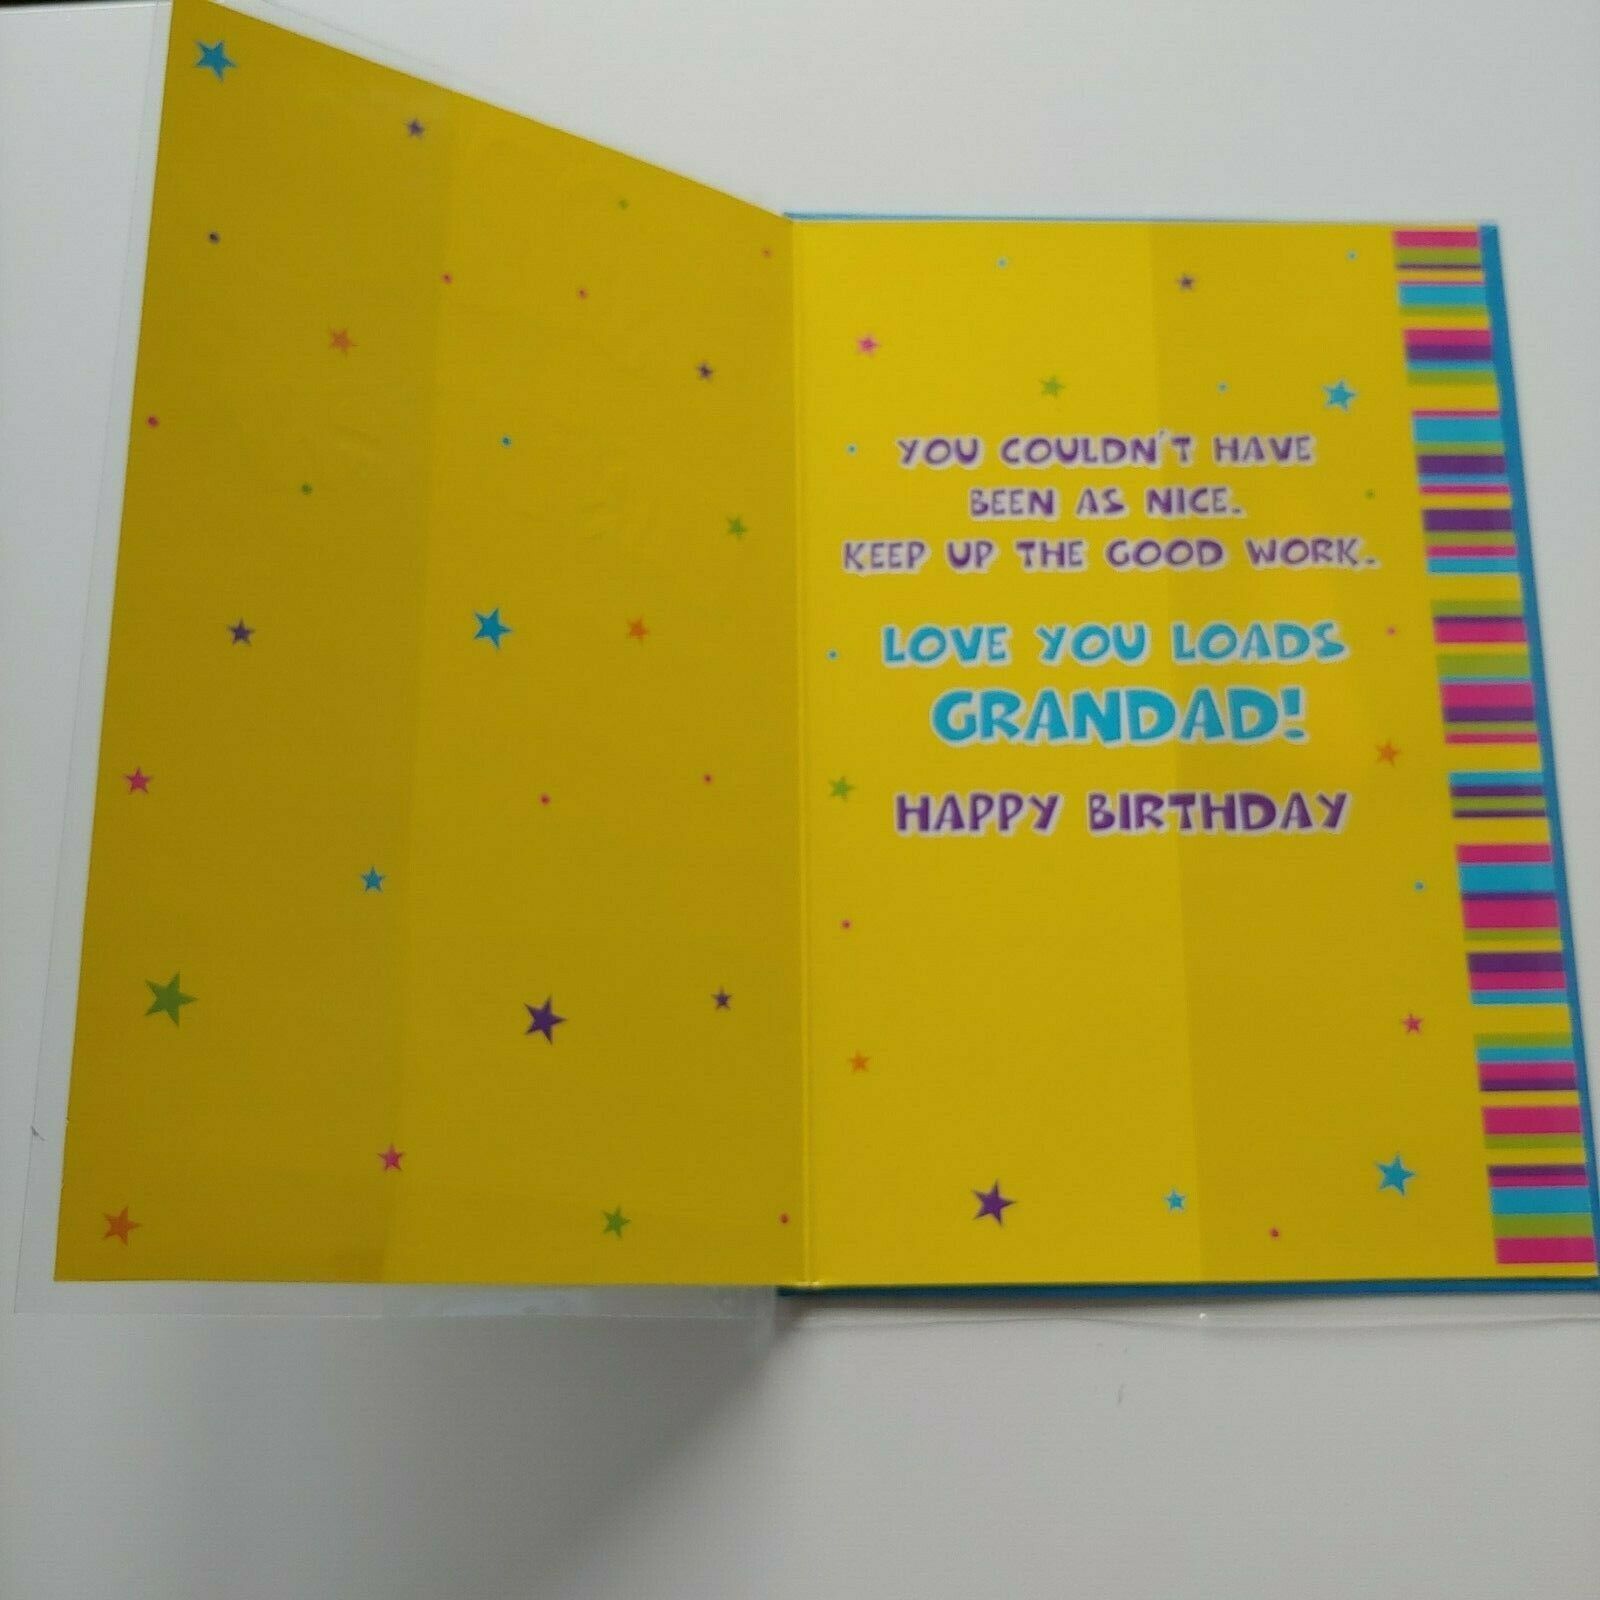 YOU COULDN'T HAVE
BEEN AS NICE.
KEEP UP THE GOOD WORK.
LOVE YOU LOADS
GRANDAD!
HAPPY BIRTHDAY